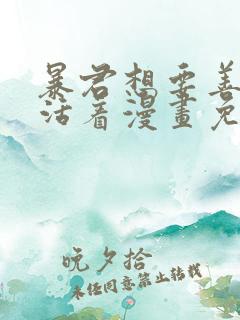 暴君想要善
活着漫畫免
晚夕拾
未任同意禁止转载